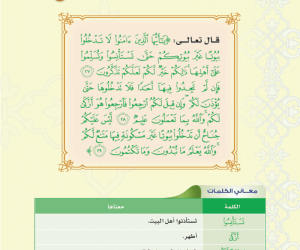 قال تعالى: ﴿يَٰٓأَيُّهَا ٱلَّذِينَ ءَامَنُواْ لَا تَدۡخُلُواْ
بُيُوتًا غَيۡرَ بُيُوتِكُمۡ حَتَّىٰ تَسۡتَأۡنِسُواْ وَتُسَلِّمُواْ
عَلَىٰٓ أَهۡلِهَاۚ ذَٰلِكُمۡ خَيۡرٞ لَّكُمۡ لَعَلَّكُمۡ تَذَكَّرُونَ ٢٧
فَإِن لَّمۡ تَجِدُواْ فِيهَآ أَحَدٗا فَلَا تَدۡخُلُوهَا حَتَّىٰ
يُؤۡذَنَ لَكُمۡۖ وَإِن قِيلَ لَكُمُ ٱرۡجِعُواْ فَٱرۡجِعُواْۖ هُوَ أَزۡكَىٰ
لَكُمۡۚ وَٱللَّهُ بِمَا تَعۡمَلُونَ عَلِيمٞ ٢٨ لَّيۡسَ عَلَيۡكُمۡ
جُنَاحٌ أَن تَدۡخُلُواْ بُيُوتًا غَيۡرَ مَسۡكُونَةٖ فِيهَا مَتَٰعٞ لَّكُمۡۚ
وَٱللَّهُ يَعۡلَمُ مَا تُبۡدُونَ وَمَا تَكۡتُمُونَ ٢٩﴾
معاني الكلمات
الكلمة معناها
تَسۡتَأۡنِسُواْ تستأذنوا أهل البيت.
أَزۡكَىٰ أطهر.